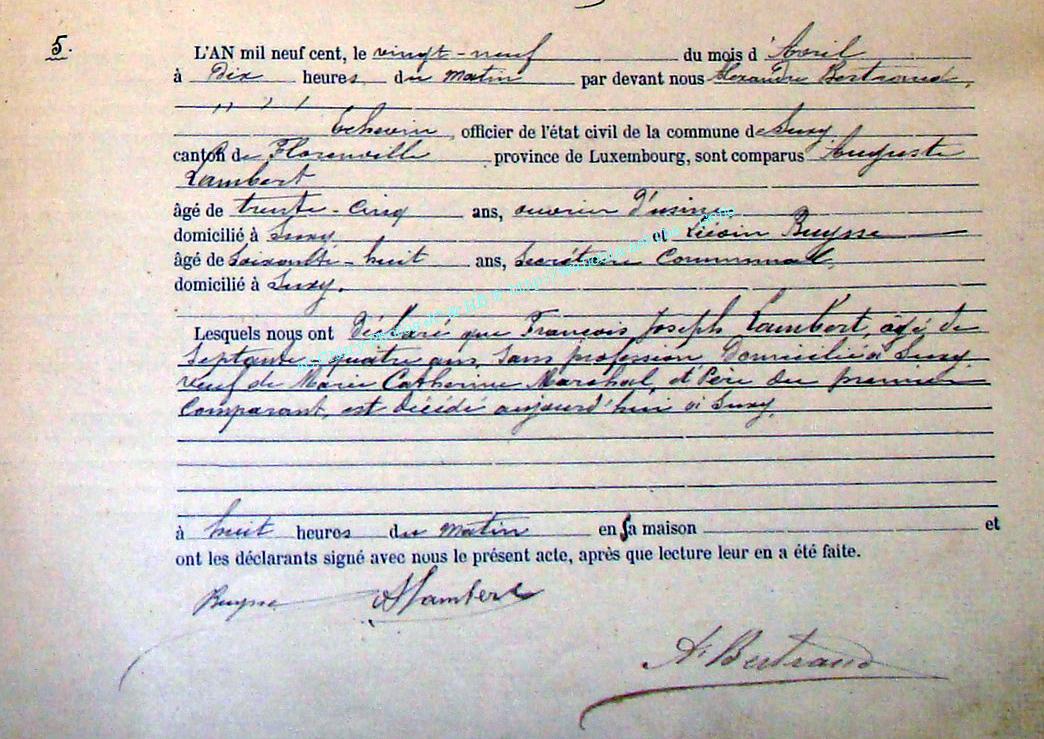 5.
L'AN mil neuf cent, le vingt-neuf du mois d'Avril
à Dix heures du matin par devant nous Alexandre Bertrand,
,, , ,
Echevin, officier de l'état civil de la commune de Suxy
canton de Florenville province de Luxembourg, sont comparus Auguste
Lambert
âgé de trente-cinq ans, ouvrier d'usine
domicilié à Suxy et Liévin Buysse
âgé de soixante-huit ans, Secrétaire Communal,
domicilié à Suxy.
Lesquels nous ont déclaré que François Joseph Lambert, âgé de
Septante quatre ans, Sans profession Domicilié à Suxy
veuf de Marie Catherine Maréchal, et Père du premier
Comparant, est décédé aujourd'hui à Suxy,
à huit heures du matin en Sa maison et
ont les déclarants signé avec nous le présent acte, après que lecture leur en a été faite.
Buysse ALambert
A. Bertrand